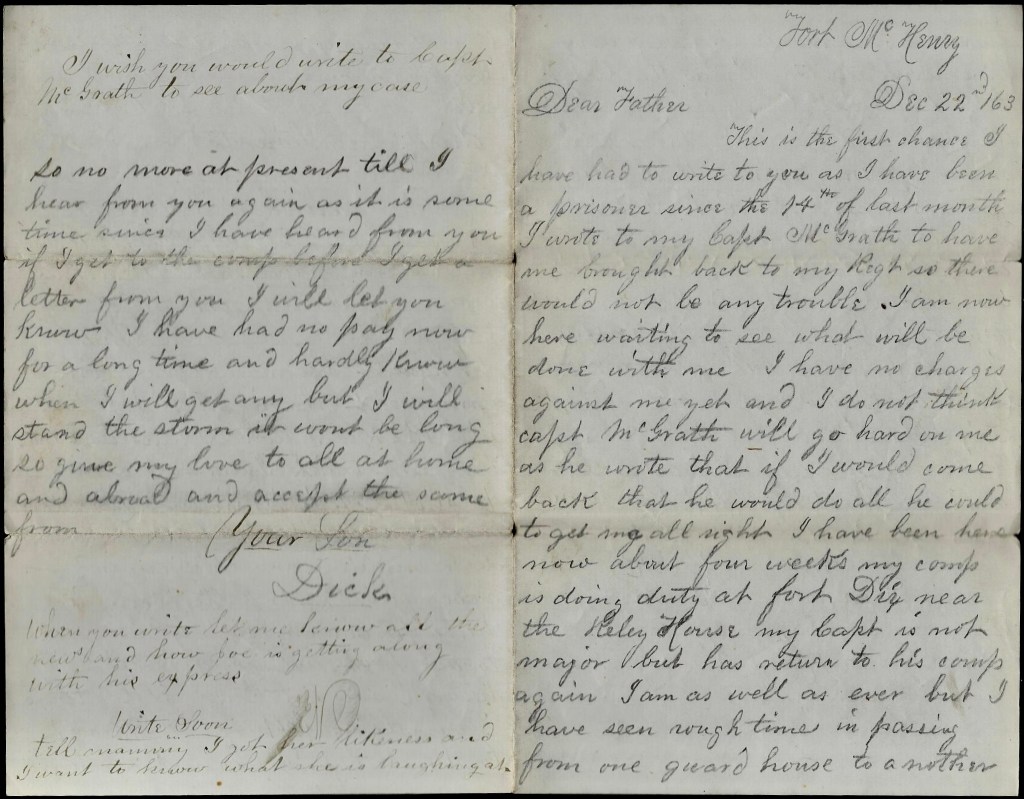 Fort Mc Henry
Dear Father Dec 22nd /63
This is the first chance I
have had to write to you as I have been
a prisoner since the 14th of last month
I wrote to my Capt McGrath to have
me brought back to my Regt so there
would not be any trouble. I am now
here waiting to see what will be
done with me I have no charges
against me yet and I do not think
capt McGrath will go hard on me
as he wrote that if I would come
back that he would do all he could
to get me all right I have been here
now about four weeks my comp
is doing duty at fort Dix near
the Reley House my Capt is not
major but has return to his comp
again I am as well as ever but I
have seen rough time in passing
from one guard house to another
so no more at present till I
hear from you again as it is some
time since I have heard from you
if I get to the comp before I get a
letter from you I will let you
know I have had no pay now
for a long time and hardly know
when I will get any but I will
stand the storm it wont be long
so give my love to all at home
and abroad and accept the same
from
Your Son
Dick
When you write let me know all the
news and how joe is getting along
with his express
Write Soon
tell mammy I got her likeness and
I want to know what she is laughing at
I wish you would write to Capt
McGrath to see about my case